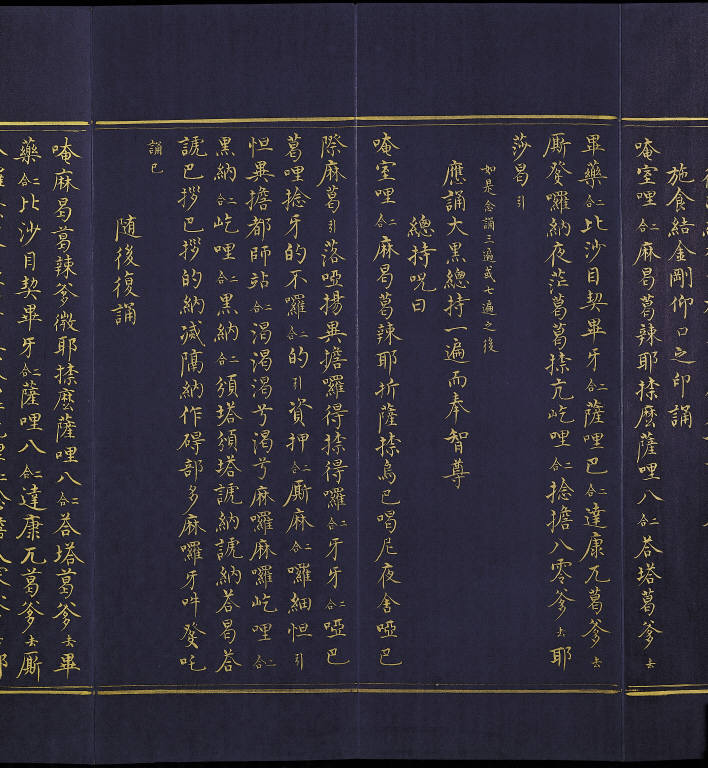 施食結金剛仰口之印誦
唵室哩二合麻曷葛辣耶捺麽薩哩八二合荅塔葛爹去
畢藥二合比沙目契畢牙二合薩哩巴二合達康兀葛爹去
厮發囉納夜茫葛葛捺亢屹哩二合捻擔八零爹去耶
莎曷引
如是念誦三遍或七遍之後
應誦大黑總持一遍而奉智尊
總持呪曰
唵室哩二合麻曷葛辣耶折薩捺烏巴喝尼夜舍啞巴
際麻葛引落啞揚異擔囉得捺得囉二合牙牙二合啞巴
葛哩捻牙的不囉二合的引資押二合厮麻二合囉細怛引
怛異擔都師站二合渴渴渴兮渴兮麻囉麻囉屹哩二合
黑納二合屹哩二合黑納二合須塔須塔諕納諕納荅曷荅
諕巴拶巴拶的納減隔納作碍部多麻囉牙吽發吒
誦巳
随後復誦
唵麻曷葛辣爹微耶捺麽薩哩八二合荅塔葛爹去畢
藥二合比沙目契畢牙二合薩哩八二合達康兀葛爹去厮